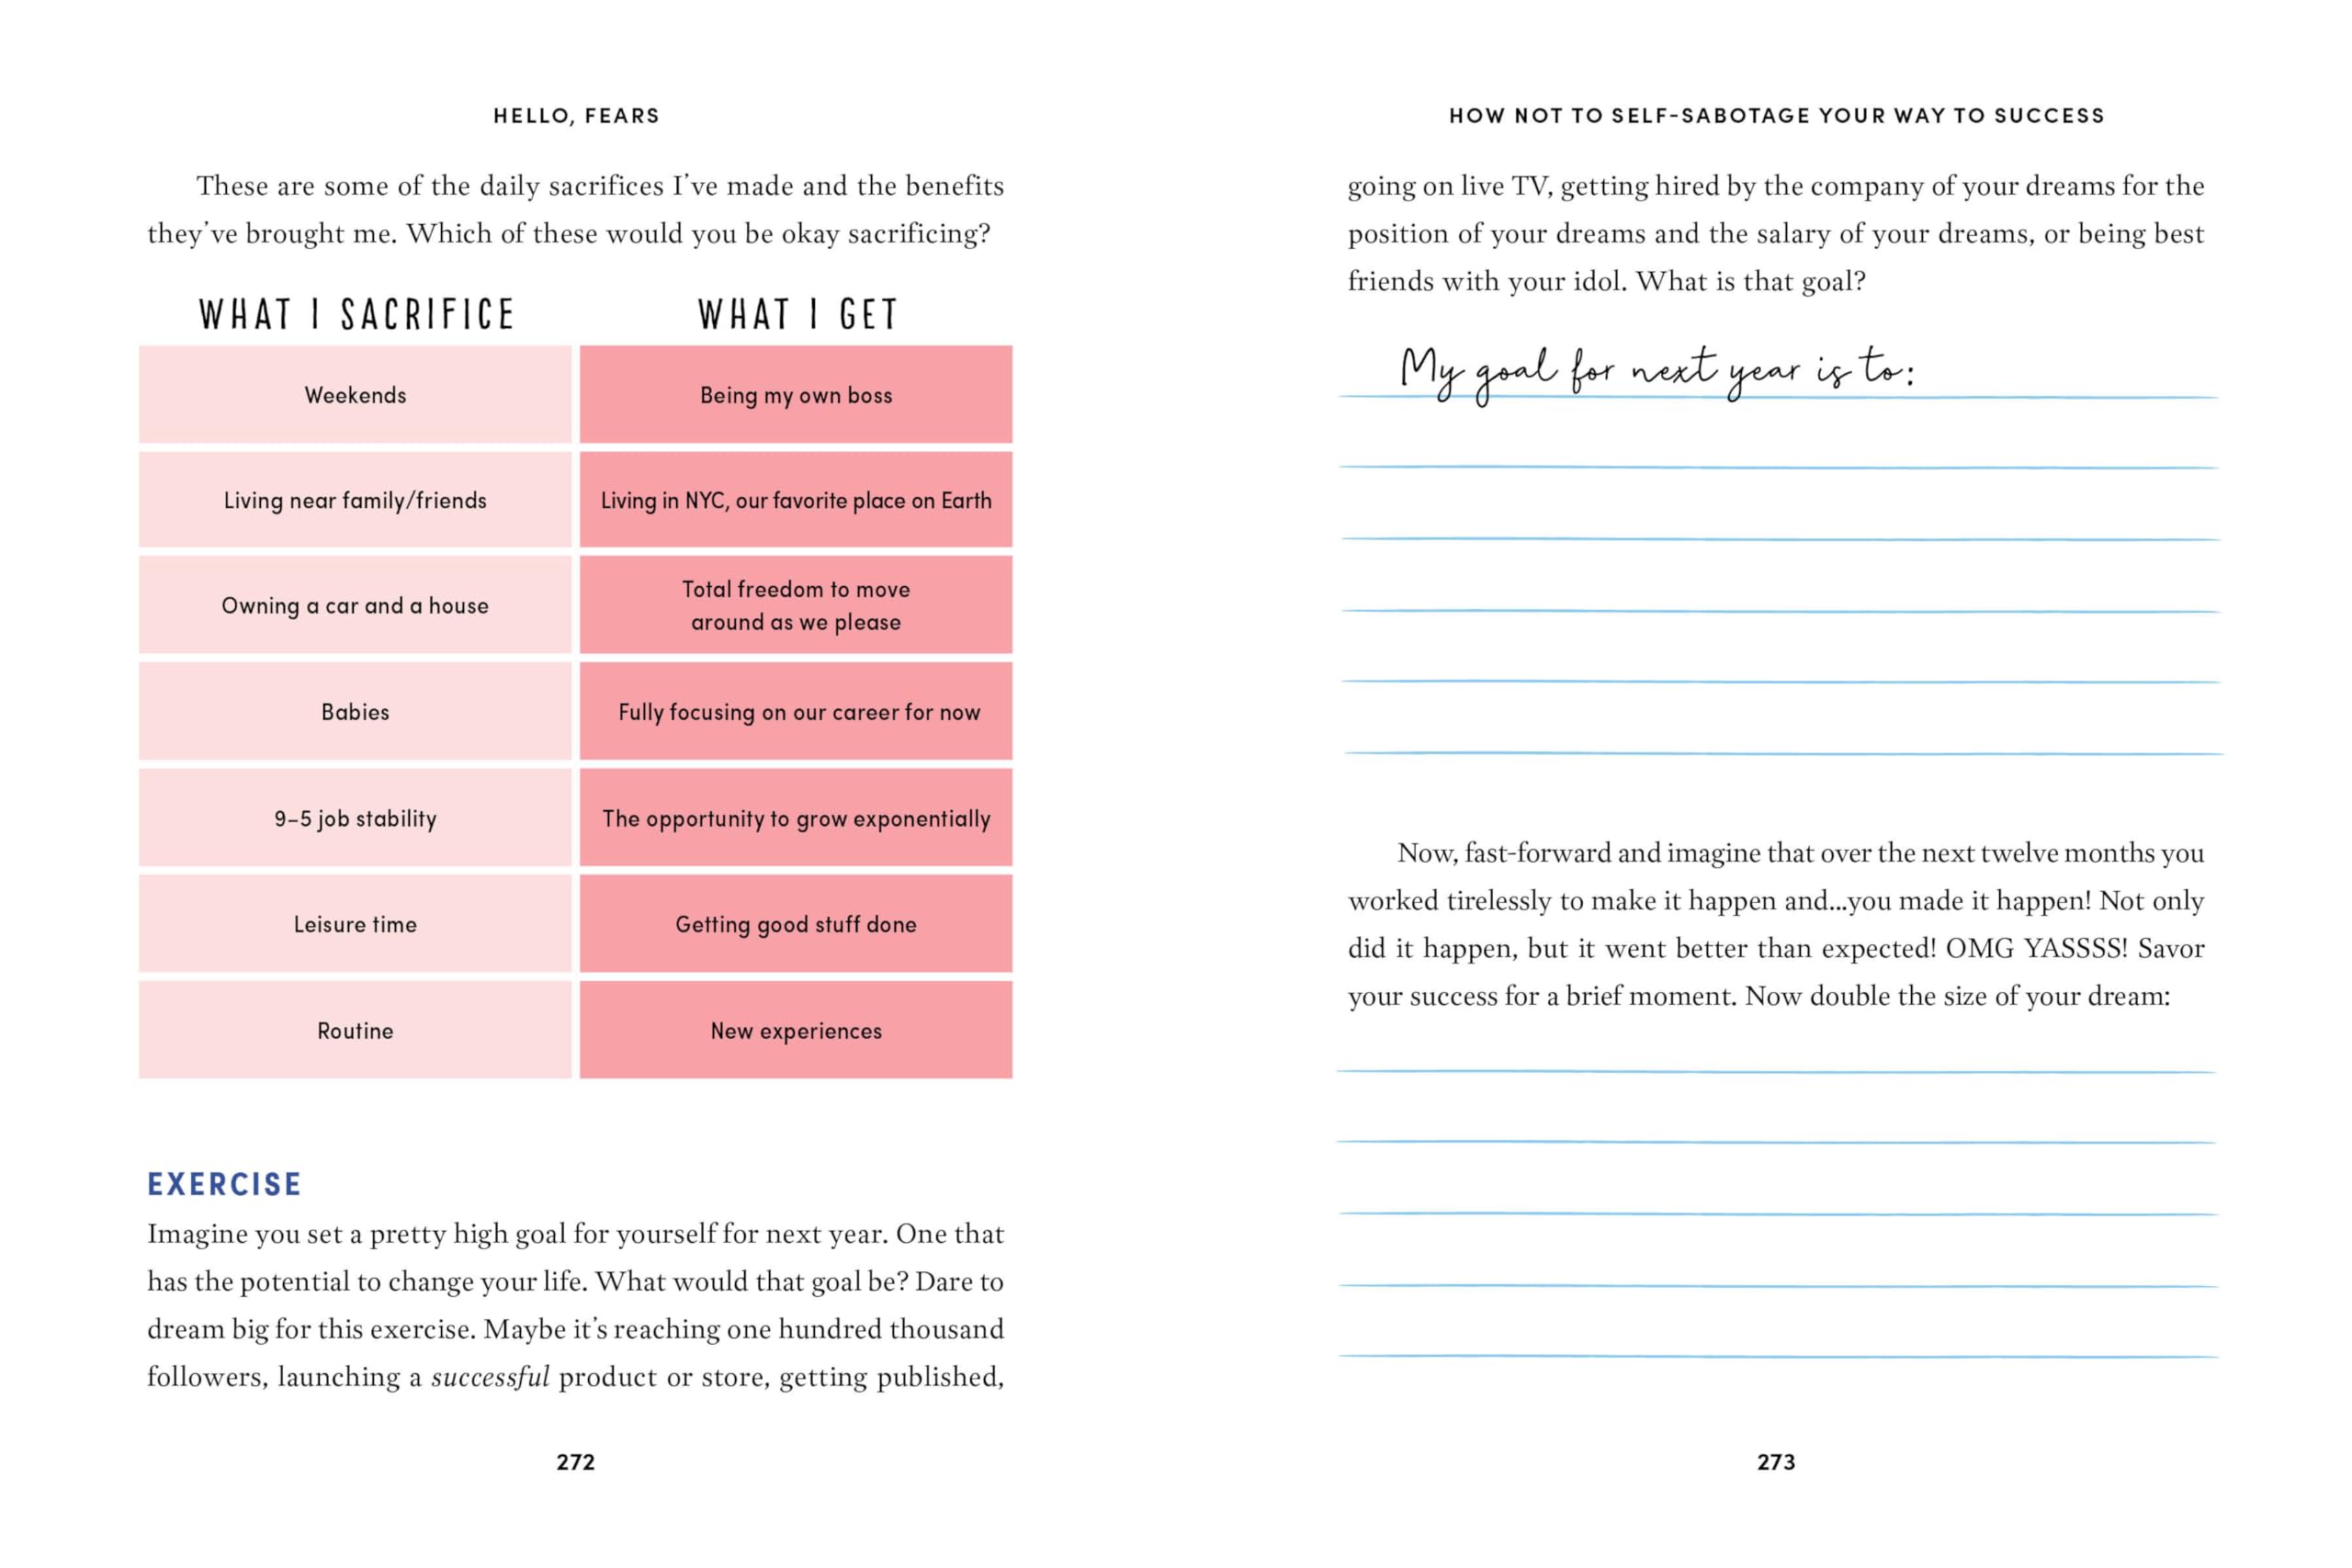 HELLO, FEARS
These are some of the daily sacrifices I've made and the benefits
they've brought me. Which of these would you be okay sacrificing?
WHAT I SACRIFICE
WHAT I GET
Weekends
Being my own boss
Living near family/friends
Living in NYC, our favorite place on Earth
Owning a car and a house
Total freedom to move
around as we please
Babies
Fully focusing on our career for now
9–5 job stability
The opportunity to grow exponentially
Leisure time
Getting good stuff done
Routine
New experiences
EXERCISE
Imagine you set a pretty high goal for yourself for next year. One that
has the potential to change your life. What would that goal be? Dare to
dream big for this exercise. Maybe it's reaching one hundred thousand
followers, launching a successful product or store, getting published,
272
HOW NOT TO SELF-SABOTAGE YOUR WAY TO SUCCESS
going on live TV, getting hired by the company of your dreams for the
position of your dreams and the salary of your dreams, or being best
friends with your idol. What is that goal?
My goal for next year is to:
Now, fast-forward and imagine that over the next twelve months you
worked tirelessly to make it happen and...you made it happen! Not only
did it happen, but it went better than expected! OMG YASSSS! Savor
your success for a brief moment. Now double the size of your dream:
273